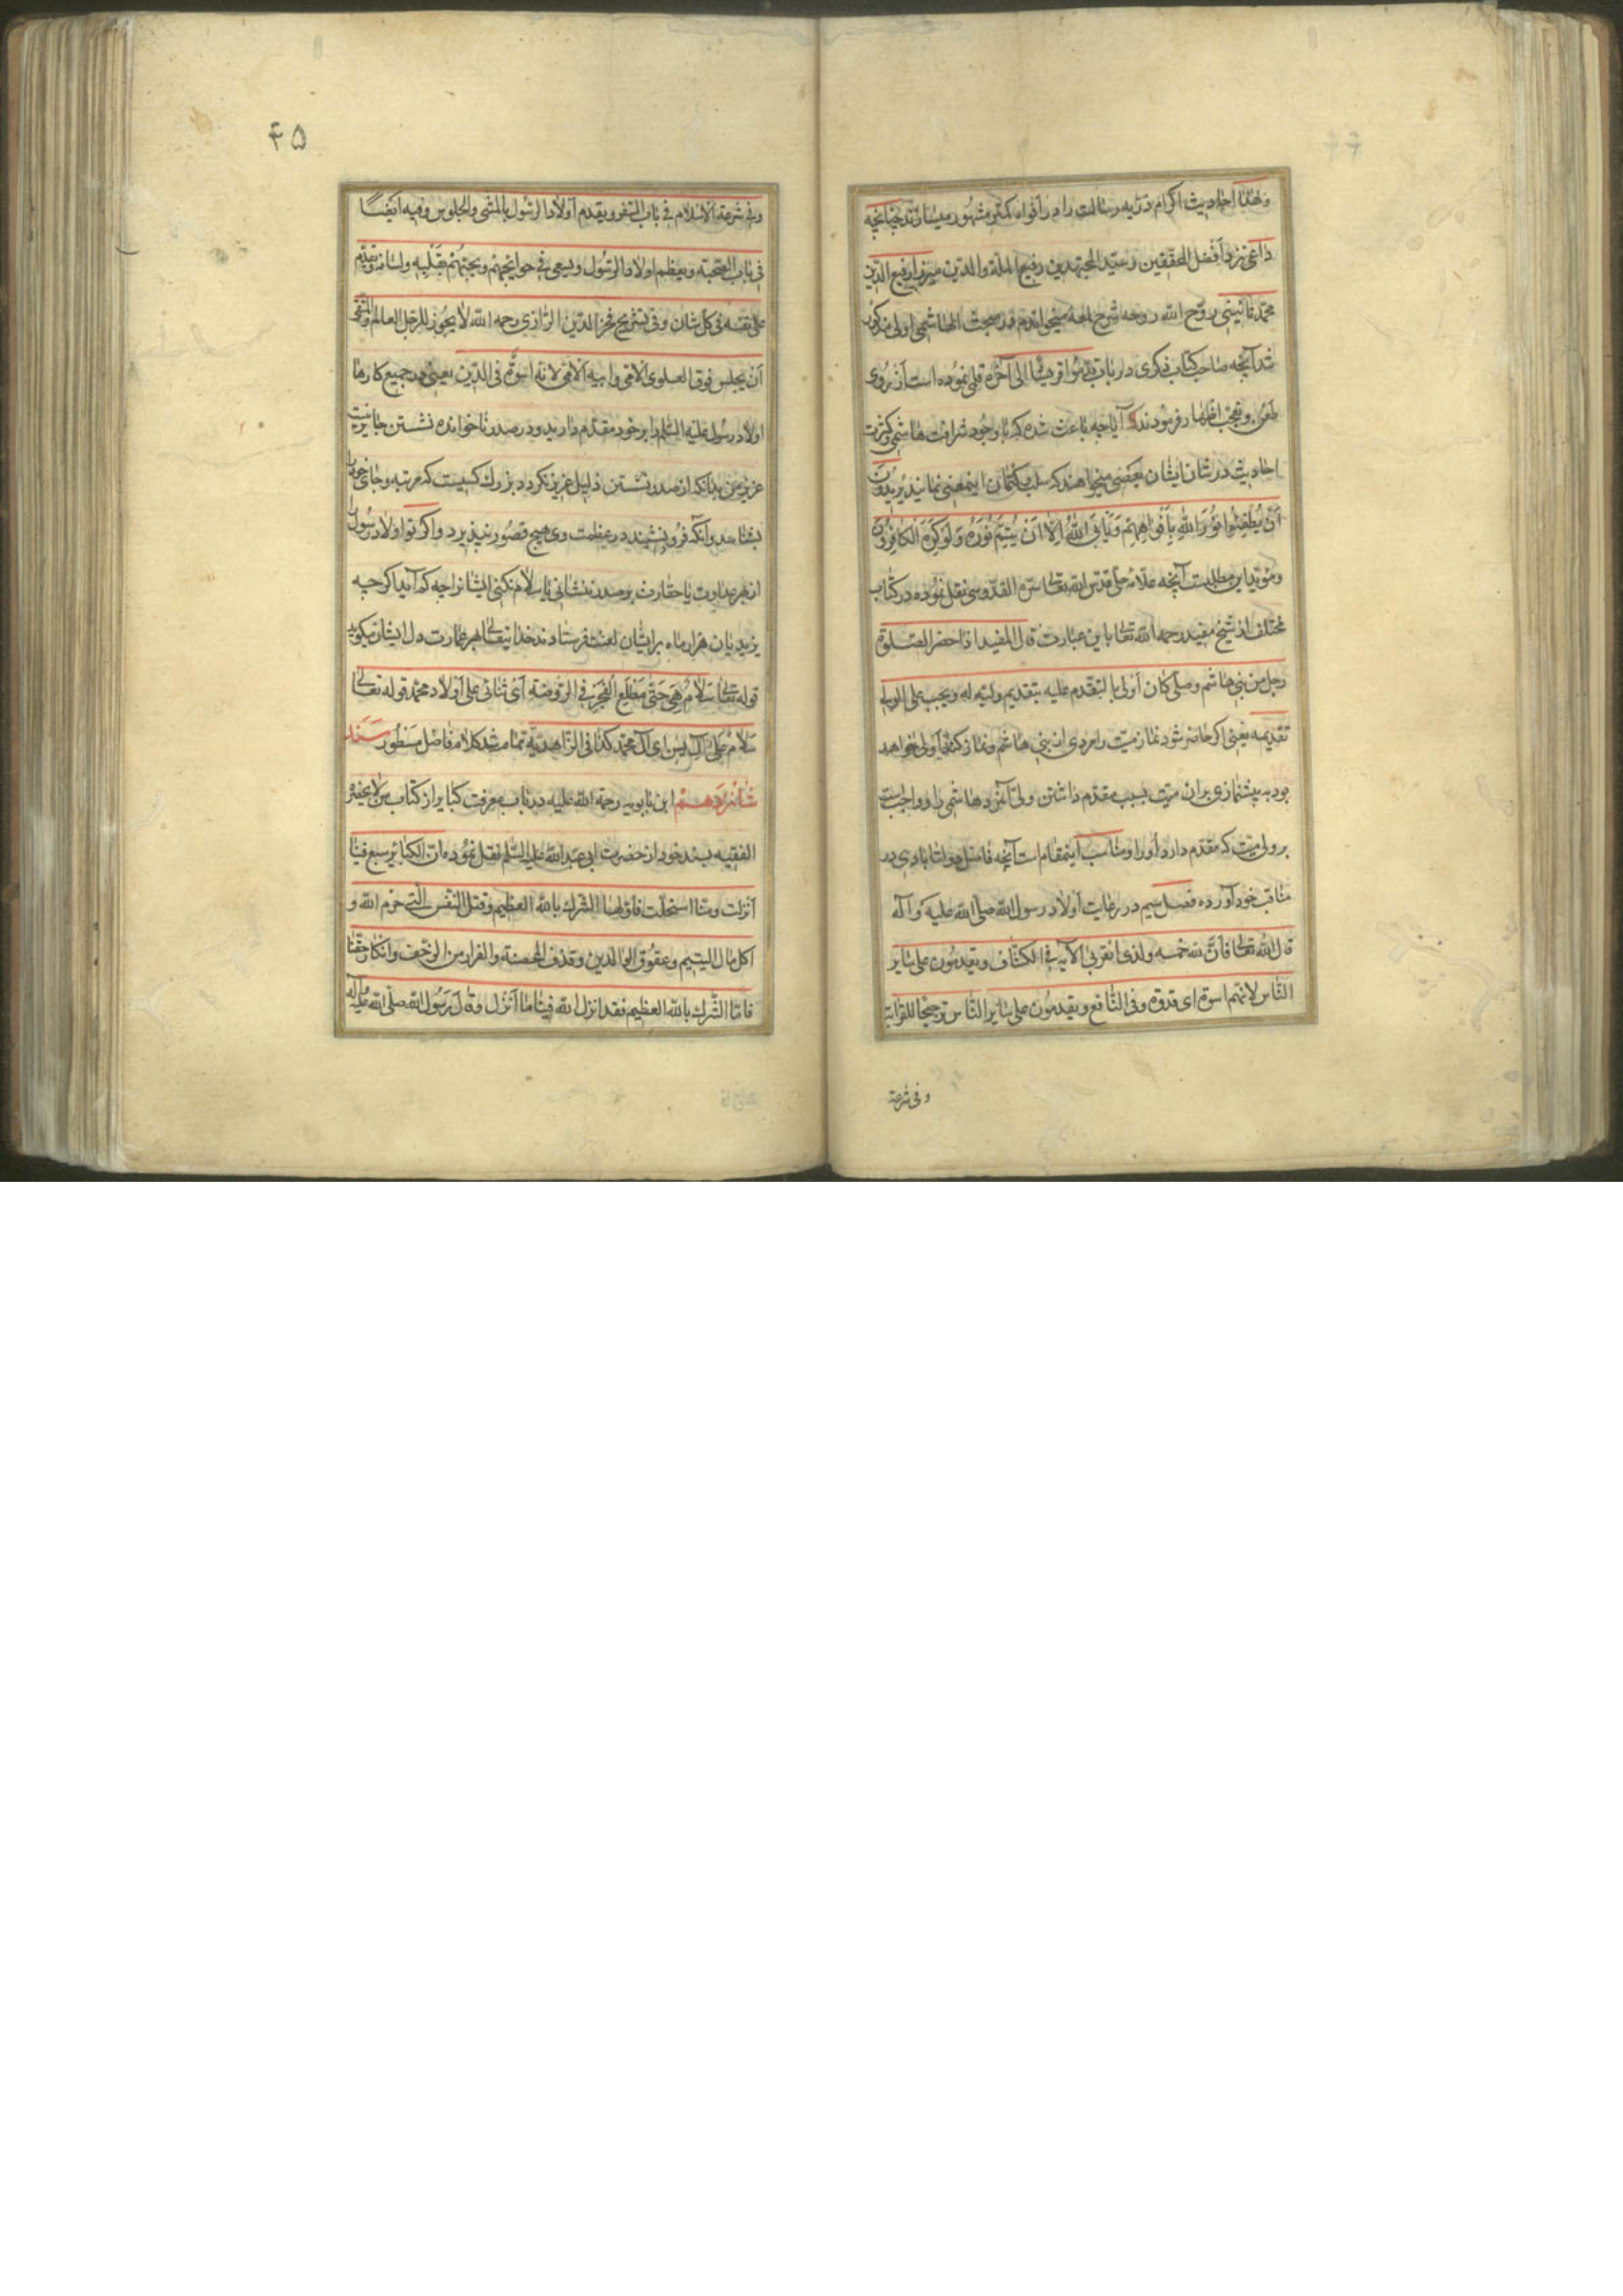 ولهذا احادیث اکرام ذریه رسالت را در افواه کمتر مشهور میسازند چنانچه
داعی نزد افضل المحققین و سید المجتهدین رفیع الملة والدین میرزا رفیع الدین
محمد نائینی روّح الله روحه شرح لمعه میخواندم در مبحث الهاشمی اولی مذکور
شد آنچه صاحب کتاب ذکری در باب قدّموا قریشا الی آخره قلمی نموده است از روی
طعن و تعجب اظهار فرمودند که آیا چه باعث شده که با وجود شرافت هاشمی و کثرت
احادیث در شان ایشان بعضی میخواهند که سلب کتمان اینمعنی نمایند یُریدُونَ
اَنْ یُطْفِئُوا نُورَ اللهِ بِاَفْواهِهِمْ وَیَاْبَی اللهُ اِلّا اَنْ یُتِمَّ نُورَهُ وَلَوْ کَرِهَ الکافِرُونَ
ومؤید این مطلبست آنچه علامه حلی قدس الله تعالی سره القدوسی نقل نموده در کتاب
مختلف از شیخ مفید رحمه الله تعالی باین عبارت قال المفید اذا حضر الصلوة
رجل من بنی هاشم وصلی کان اولی بالتقدم علیه بتقدیم ولیه له ویجب علی الولی
تقدیمه یعنی اکر حاضر شود نماز میت را مردی از بنی هاشم و نماز کند اولی خواهد
بود به پیشنمازی بران میت بسبب مقدم داشتن ولی آنمرد هاشمی را و واجب است
بر ولی میت که مقدم دارد او را ومناسب اینمقام است آنچه فاضل دولت‌ابادی در
مناقب خود آورده فصل سیم در رعایت اولاد رسول الله صلی الله علیه وآله
قال الله تعالی فانّ لله خمسه ولذی القربی الآیه فی الکشاف ویقدمون علی سایر
النّاس لانهم اسوة ای قدوة وفی النافع ویقدمون علی سایر الناس ترجیحا للقرابة
وفی شرعة
۴۵
وفی شرعة الاسلام فی باب السفر ویقدم اولاد الرسول بالمشی والجلوس وفیه ایضًا
فی باب الصحبة ویعظم اولاد الرسول ویسعی فی حوایجهم ویحبهم بقلبه ولسانه ویقدم
علی نفسه فی کل شان وفی فخر الدین الرازی رحمه الله لا یجوز للرجل العالم والمتقی
اَنْ یجلس فوق العلوی الامی وابیه الامی لانه اسوة فی الدین یعنی در جمیع کارها
اولاد رسول علیه السلم را بر خود مقدم دارید و در صدر ناخوانده نشستن جایز نیست
عزیز من بدانکه از صدر نشستن ذلیل عزیز نکردد بزرک کسیست که مرتبه و جای خود را
بشناسد وانکه فرو نشیند در عظمت وی هیچ قصور نپذیرد و اکر تو اولاد رسول را
از بهر عداوت یا حقارت بر صدر ننشانی یا سلام نکنی ایشانرا چه کم آید اکرچه
یزیدیان هزار ماه بر ایشان لعنت فرستادند خدایتعالی بهر عمارت دل ایشان میکوید
قوله تعالی سَلامٌ هِیَ حَتّی مَطْلَعِ الْفَجْرِ فی الروضة ای ثنائی علی اولاد محمد قوله تعالی
سَلامٌ عَلی آلِ یس ای آل محمد کذا فی الزاهدیة تمام شد کلام فاضل مسطور سند
شانزدهم ابن بابویه رحمة الله علیه در باب معرفت کبایر از کتاب من لا یحضر
الفقیه بسند خود از حضرت ابی عبدالله علیه السّلم نقل نموده انّ الکبایر سبع فینا
انزلت ومنّا استحلت فاولها الشرک بالله العظیم وقتل النفس الّتی حرّم الله و
اکل مال الیتیم وعقوق الوالدین وقذف المحصنة والفرار من الزحف وانکار حقّنا
فامّا الشّرک بالله العظیم فقد انزل الله فینا ما انزل وقال رسول الله صلّی الله علیه وآله